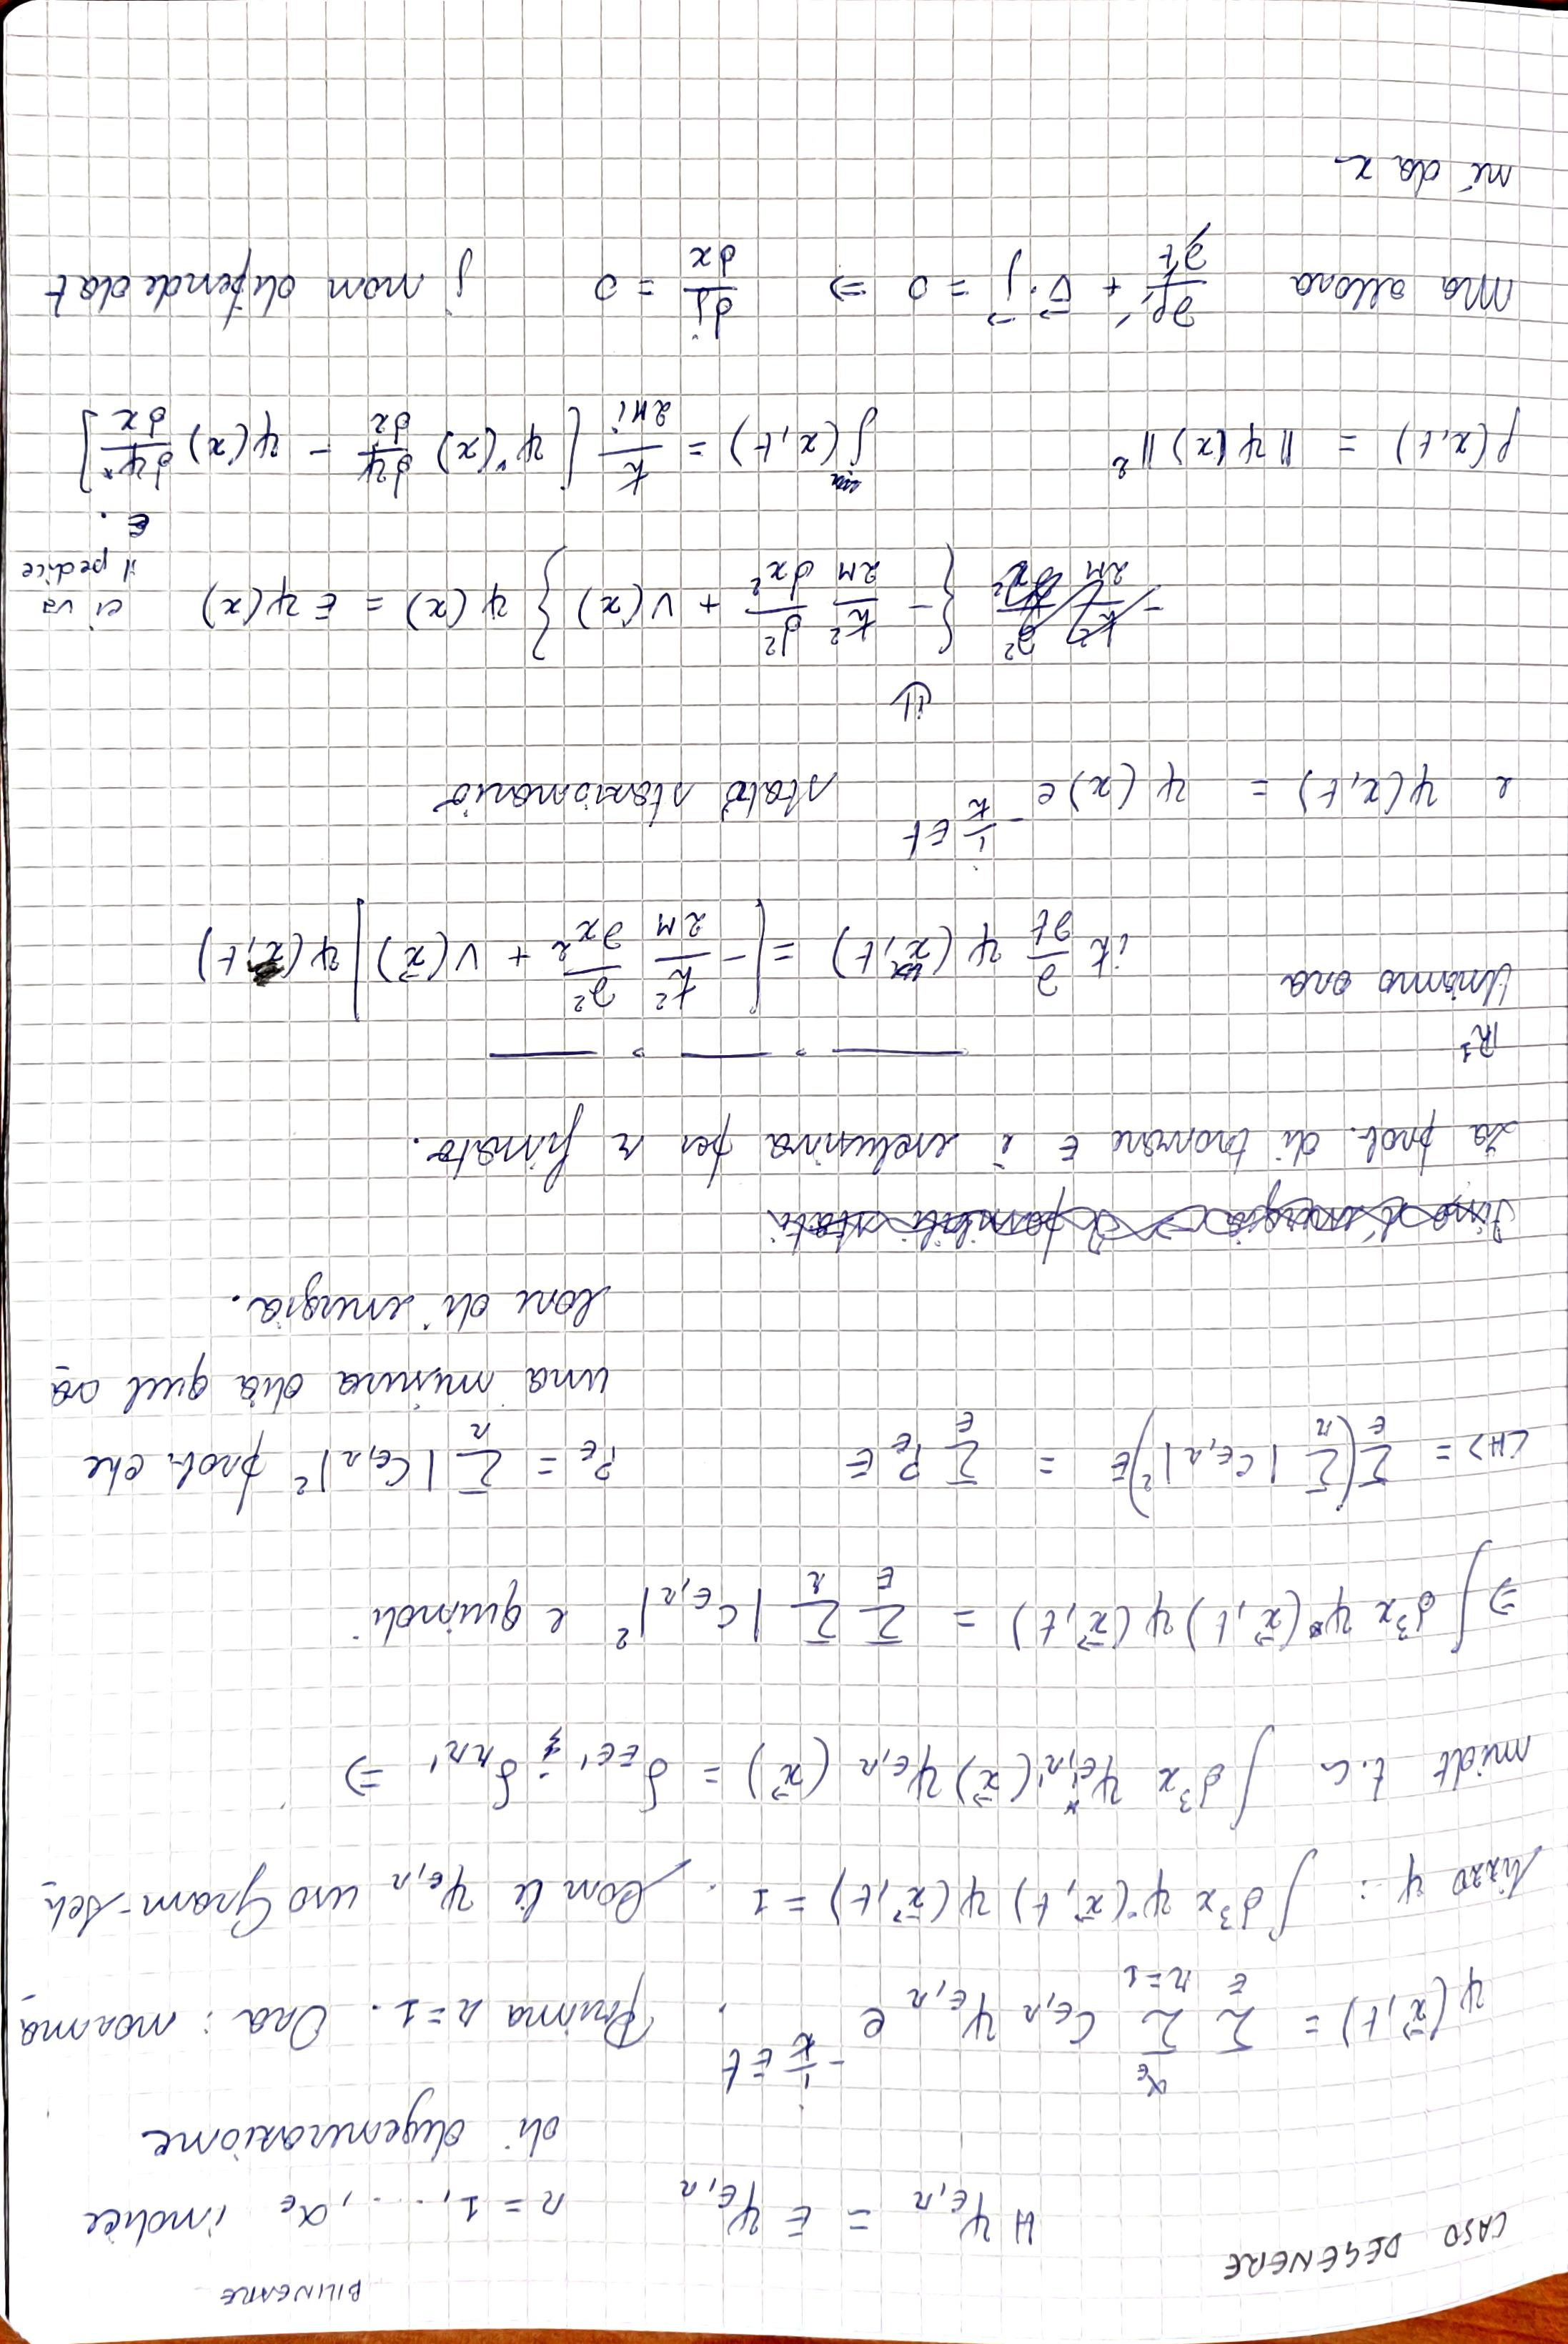 BILINEARE
CASO DEGENERE
H ψ_{E,r} = E ψ_{E,r}   r = 1, ..., α_E indice
di degenerazione
ψ(x⃗,t) = Σ_E Σ_{r=1}^{α_E} C_{E,r} ψ_{E,r} e^{-i/ħ Et}. Prima r=1. Ora: norma
lizzo ψ: ∫d³x ψ*(x⃗,t) ψ(x⃗,t) = 1. Con le ψ_{E,r} uso Gram-Sch
midt t.c. ∫d³x ψ*_{E',r'}(x⃗) ψ_{E,r}(x⃗) = δ_{EE'} δ_{rr'} ⇒
⇒ ∫d³x ψ*(x⃗,t) ψ(x⃗,t) = Σ_E Σ_r |C_{E,r}|² e quindi
<H> = Σ_E (Σ_r |C_{E,r}|²) E = Σ_E P_E E   P_E = Σ_r |C_{E,r}|² prob. che
una misura dia quel va
lore di energia.
La prob. di trovare E è esclusiva per r fissato.
ℝ¹
Usiamo ora   iħ ∂/∂t ψ(x,t) = [-ħ²/2M ∂²/∂x² + V(x⃗)] ψ(x,t)
e ψ(x,t) = ψ(x) e^{-i/ħ Et}   stato stazionario
⇓
{-ħ²/2M d²/dx² + V(x)} ψ(x) = E ψ(x)   ci va
il pedice
E.
ρ(x,t) = ||ψ(x)||²   j(x,t) = ħ/2Mi [ψ*(x) dψ/dx - ψ(x) dψ*/dx]
Ma allora   ∂ρ/∂t + ∇⃗·j⃗ = 0 ⇒ dj/dx = 0   j non dipende da t
né da x.